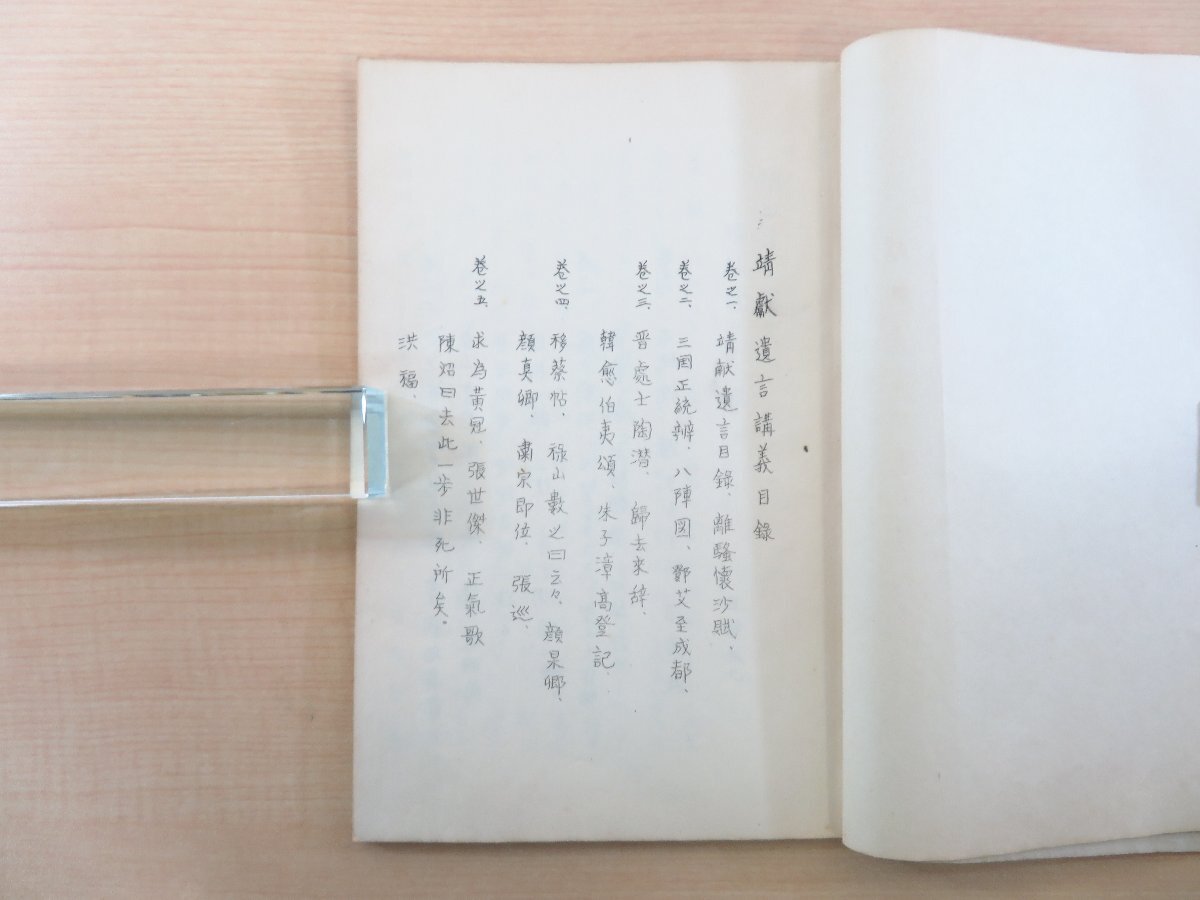 靖獻遺言講義目錄
卷之一、靖献遺言目錄、離騷懷沙賦、
卷之二、三国正統辨、八陣図、鄧艾至成都、
卷之三、晋處士陶潜、歸去來辞、
韓愈伯夷頌、朱子漳高登記、
卷之四、移蔡帖、祿山數之曰云々、顔杲卿、
顔真卿、肅宗即位、張巡、
卷之五、求為黃冠、張世傑、正氣歌
陳炤曰去此一步非死所矣。
洪福、